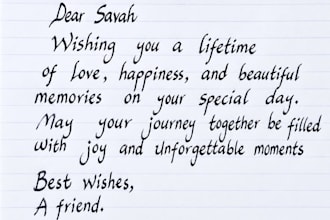 Dear Savah
Wishing you a lifetime
of love, happiness, and beautiful
memories on your special day.
May your journey together be filled
with joy and unforgettable moments
Best wishes,
A friend.